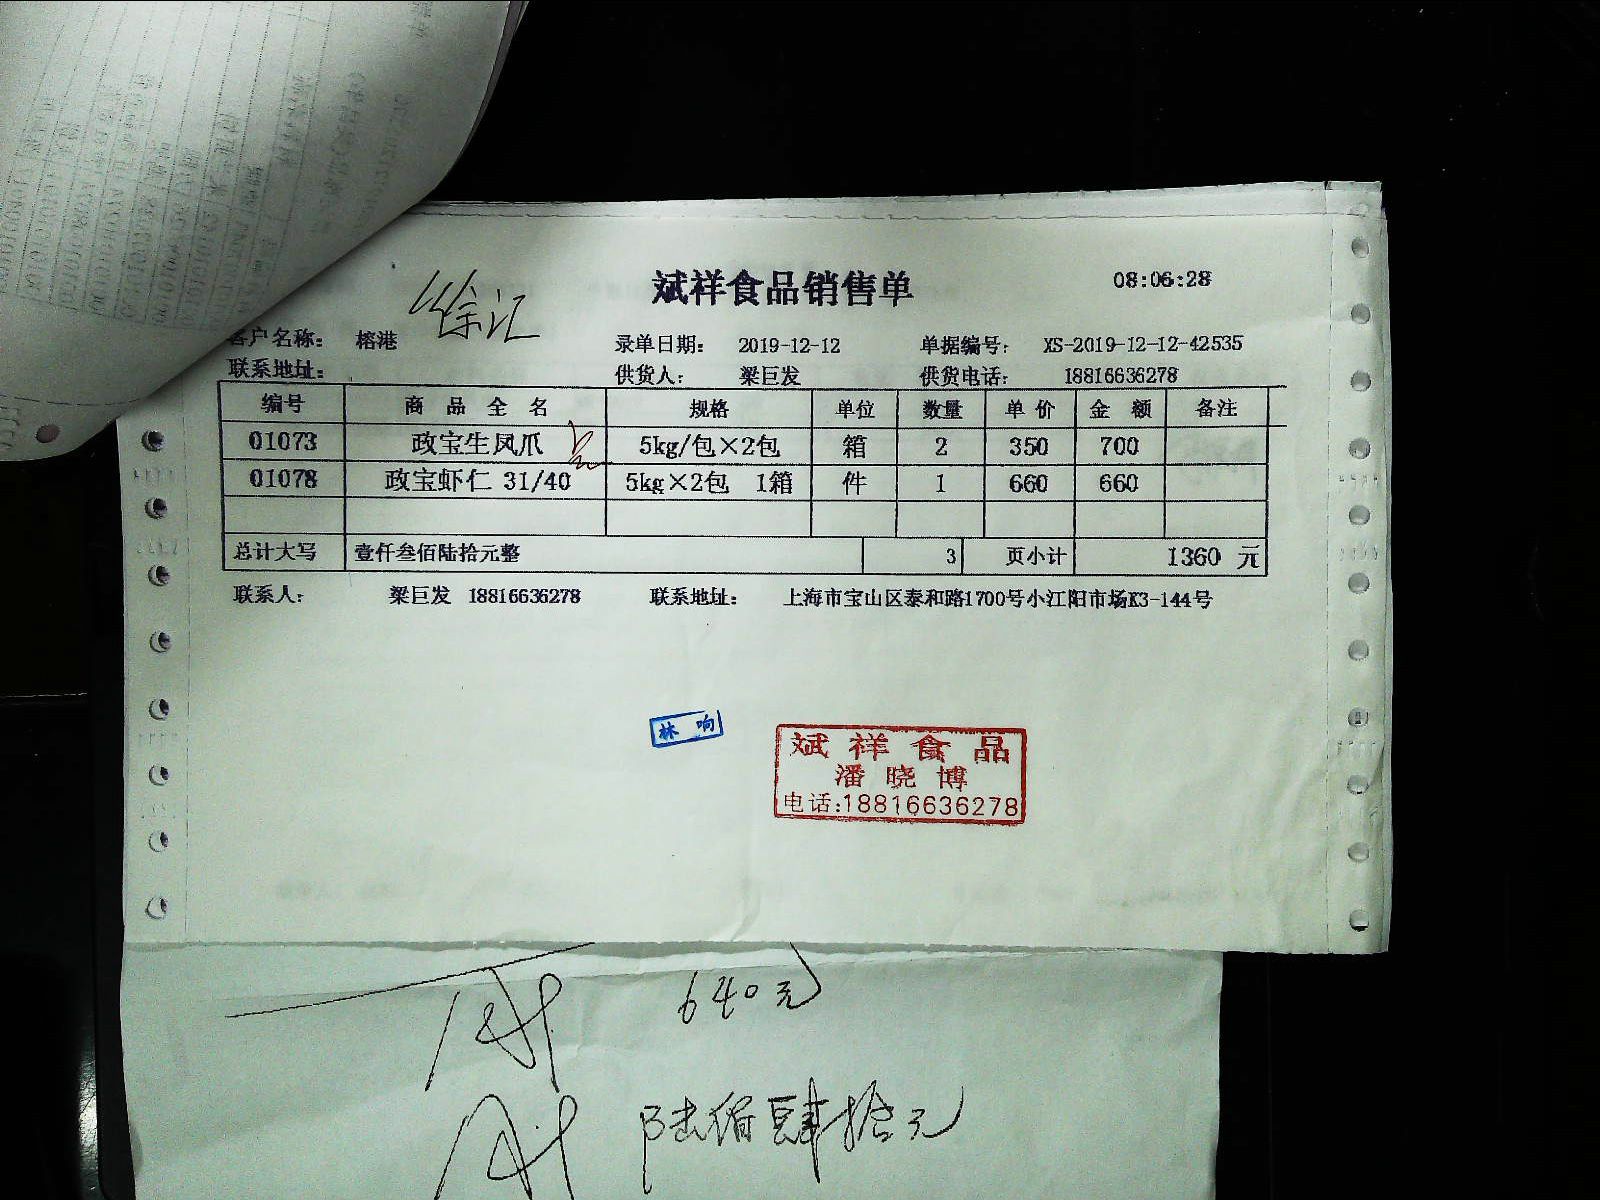 斌祥食品销售单 08:06:28
徐汇
客户名称： 榕港 录单日期： 2019-12-12 单据编号： XS-2019-12-12-42535
联系地址： 供货人： 梁巨发 供货电话： 18816636278
编号 商品全名 规格 单位 数量 单价 金额 备注
01073 政宝生凤爪 5kg/包×2包 箱 2 350 700
01078 政宝虾仁 31/40 5kg×2包 1箱 件 1 660 660
总计大写 壹仟叁佰陆拾元整 3 页小计 1360 元
联系人： 梁巨发 18816636278 联系地址： 上海市宝山区泰和路1700号小江阳市场K3-144号
林响
斌祥食品
潘晓博
电话:18816636278
640元
陆佰肆拾元